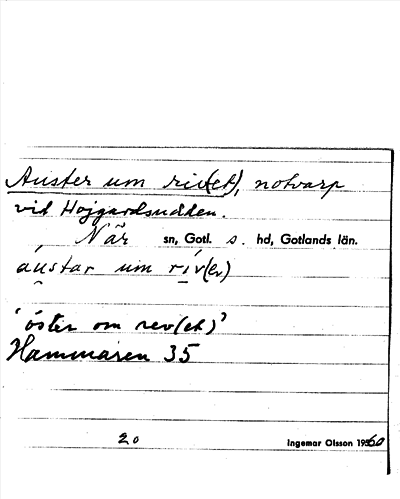 Auster um riv(et), notvarp
vid Hojgardsudden.
När sn, Gotl. s. hd, Gotlands län.
áustar um rív(e)
'öster om rev(et)'
Hammaren 35
20 Ingemar Olsson 1960